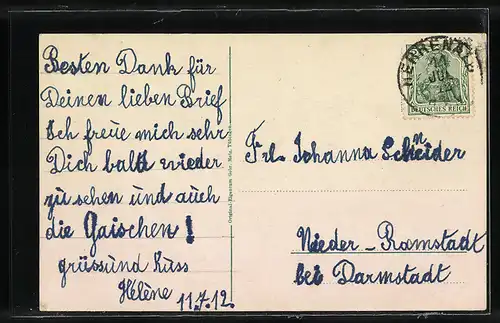 Besten Dank für
Deinen lieben Brief
Ich freue mich sehr
Dich bald wieder
zu sehen und auch
die Gaischen!
grüssund Kuss
Helene
11.7.12.
Frl. Johanna Schneider
Nieder-Ramstadt
bei Darmstadt
HERRENALB
11
JUL
DEUTSCHES REICH